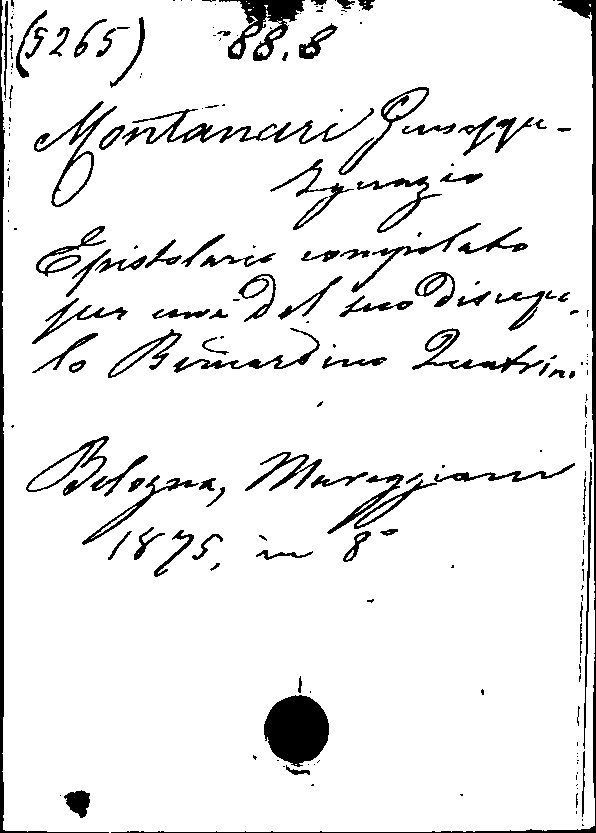 (5265) 88.8
Montanari Giuseppe-
Ignazio
Epistolario compilato
per cura del suo discepo-
lo Bernardino Quatrini
Bologna, Mareggiani
1875, in 8°